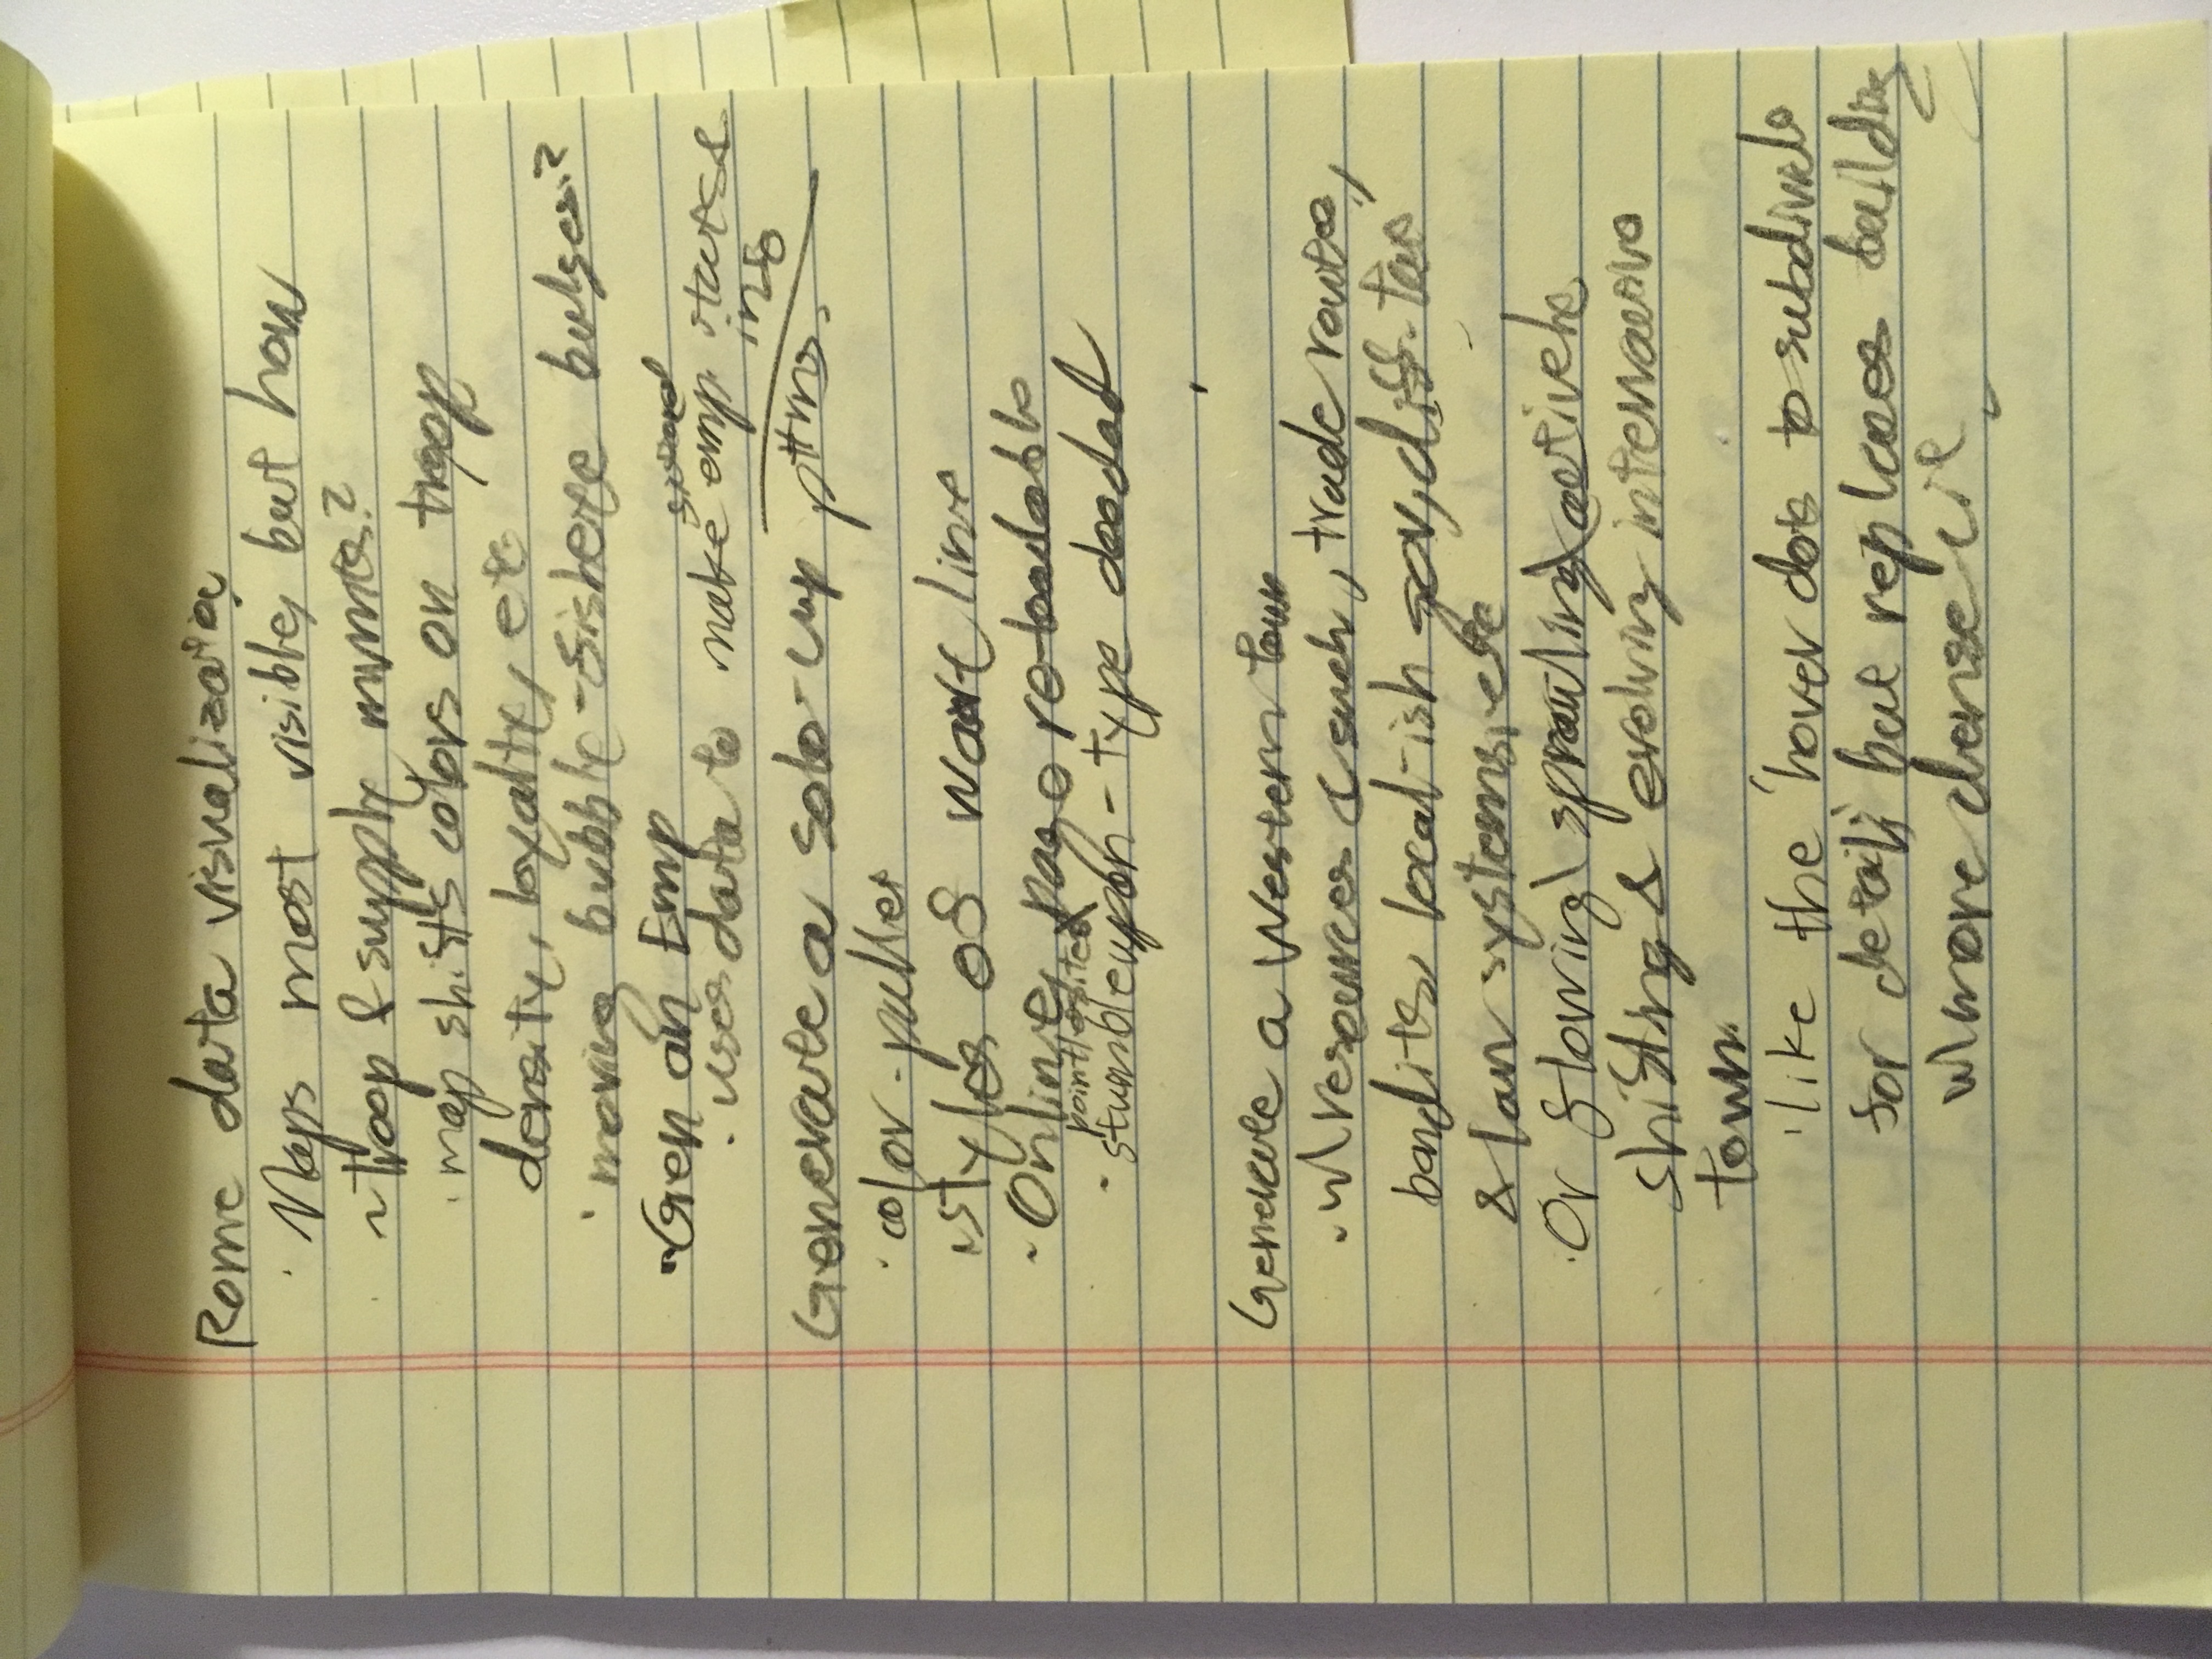 Rome data visualizatio
· Maps most visible, but how
~ troop & supply mvmts?
· map shifts colors on troop
density, loyalty, etc
· moving bubble-fisheye bulges?
· Gen an Emp
· uses data to make emp. stats &
info
Generate a solo-cup pttrns.
· color-puller
· styles of wave line
· Online, page re-loadable
pointlesssites
· stumbleupon-type doodad
Generate a Western town
· w\ resources & such, trade routes,
bandits, local-ish gov, diff. tax
& law systems, etc
· Or flowing\ sprawling\ actively
shifting & evolving interactive
town.
· like the 'hover dots to subdivide
for detail', but replaces building
w\ more dense